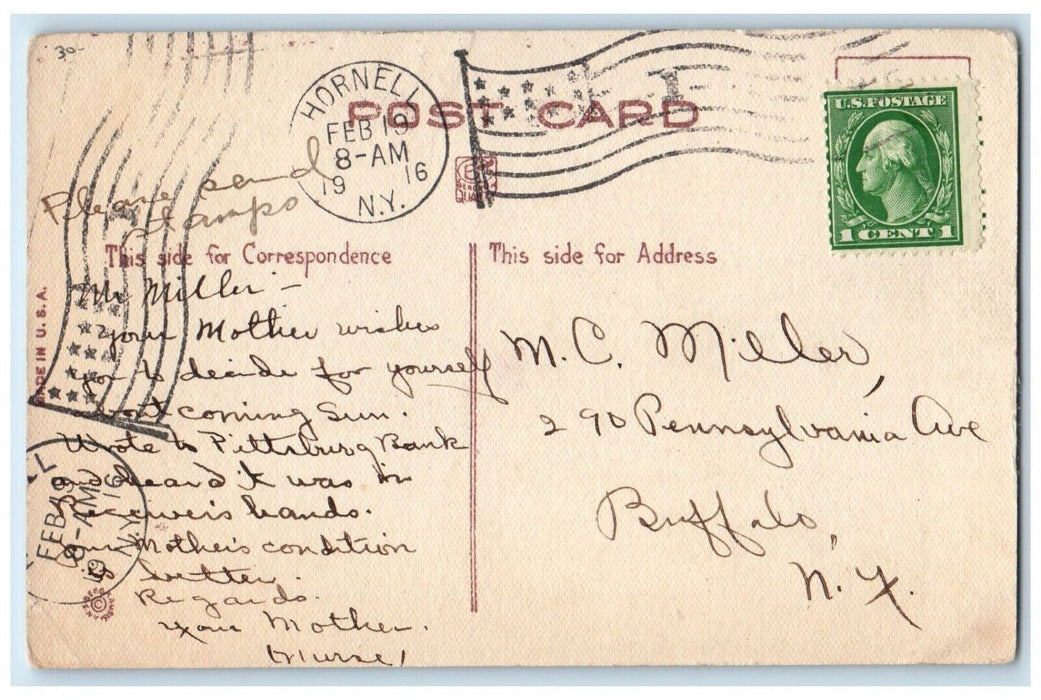 30-
HORNELL
FEB 19
8-AM
19 16
N.Y.
POST CARD
U.S. POSTAGE
1 CENT 1
Please send
stamps
This side for Correspondence
This side for Address
MADE IN U.S.A.
Mr Miller -
your Mother wishes
you to decide for yourself
coming Sun.
Wrote to Pittsburg Bank
and heard it was in
Receivers hands.
your Mother's condition
is better.
Regards.
your Mother.
(Nurse)
M. C. Miller,
290 Pennsylvania Ave
Buffalo,
N. Y.
LL
FEB 19
8-AM
19 16
N.Y.